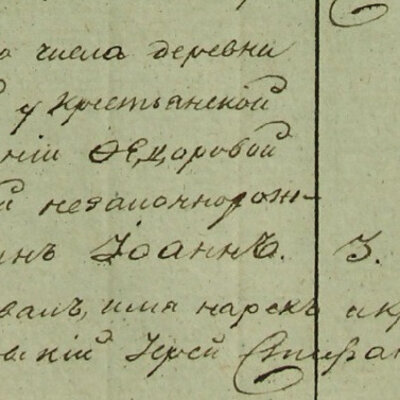 числа деревни
у крестьянской
нiи Ѳедоровой
й незаконнорож-
инъ Iоаннъ. 3.
валъ, имя нарекъ и кр
вскiй Iерей Стефан